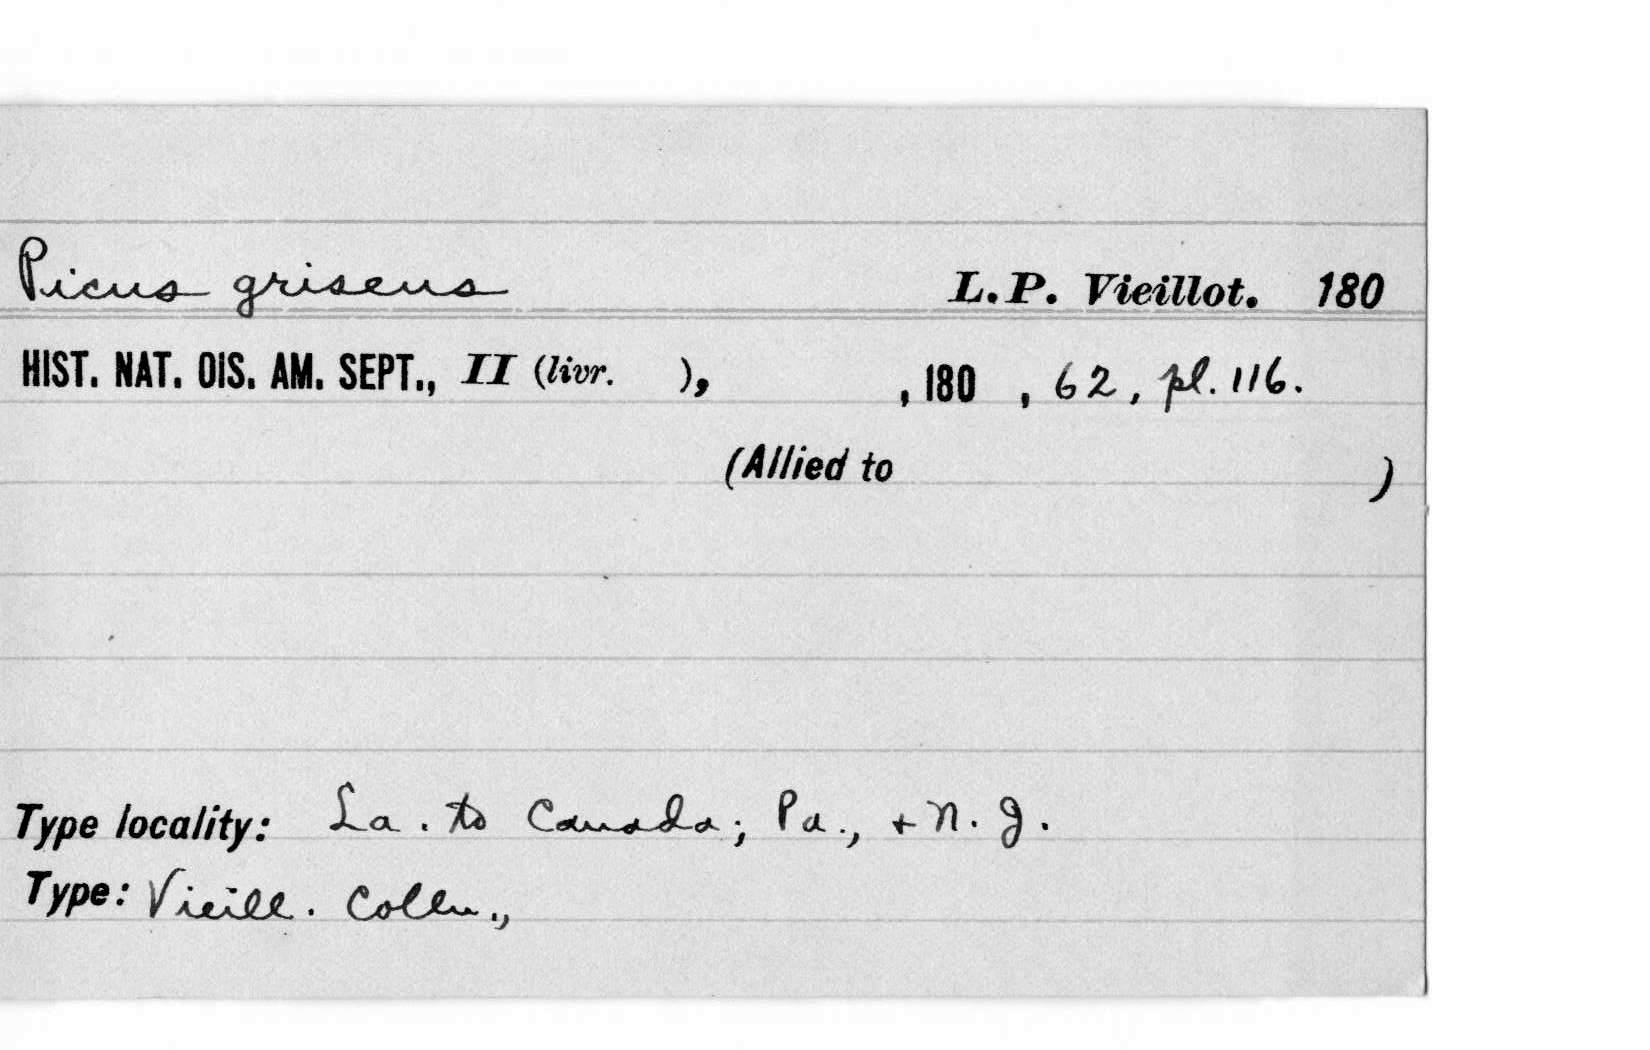 Picus griseus L.P. Vieillot. 180
HIST. NAT. OIS. AM. SEPT., II (livr. ), , 180 , 62, pl. 116.
(Allied to )
Type locality: La. to Canada; Pa., + N. J.
Type: Vieill. Colln.,